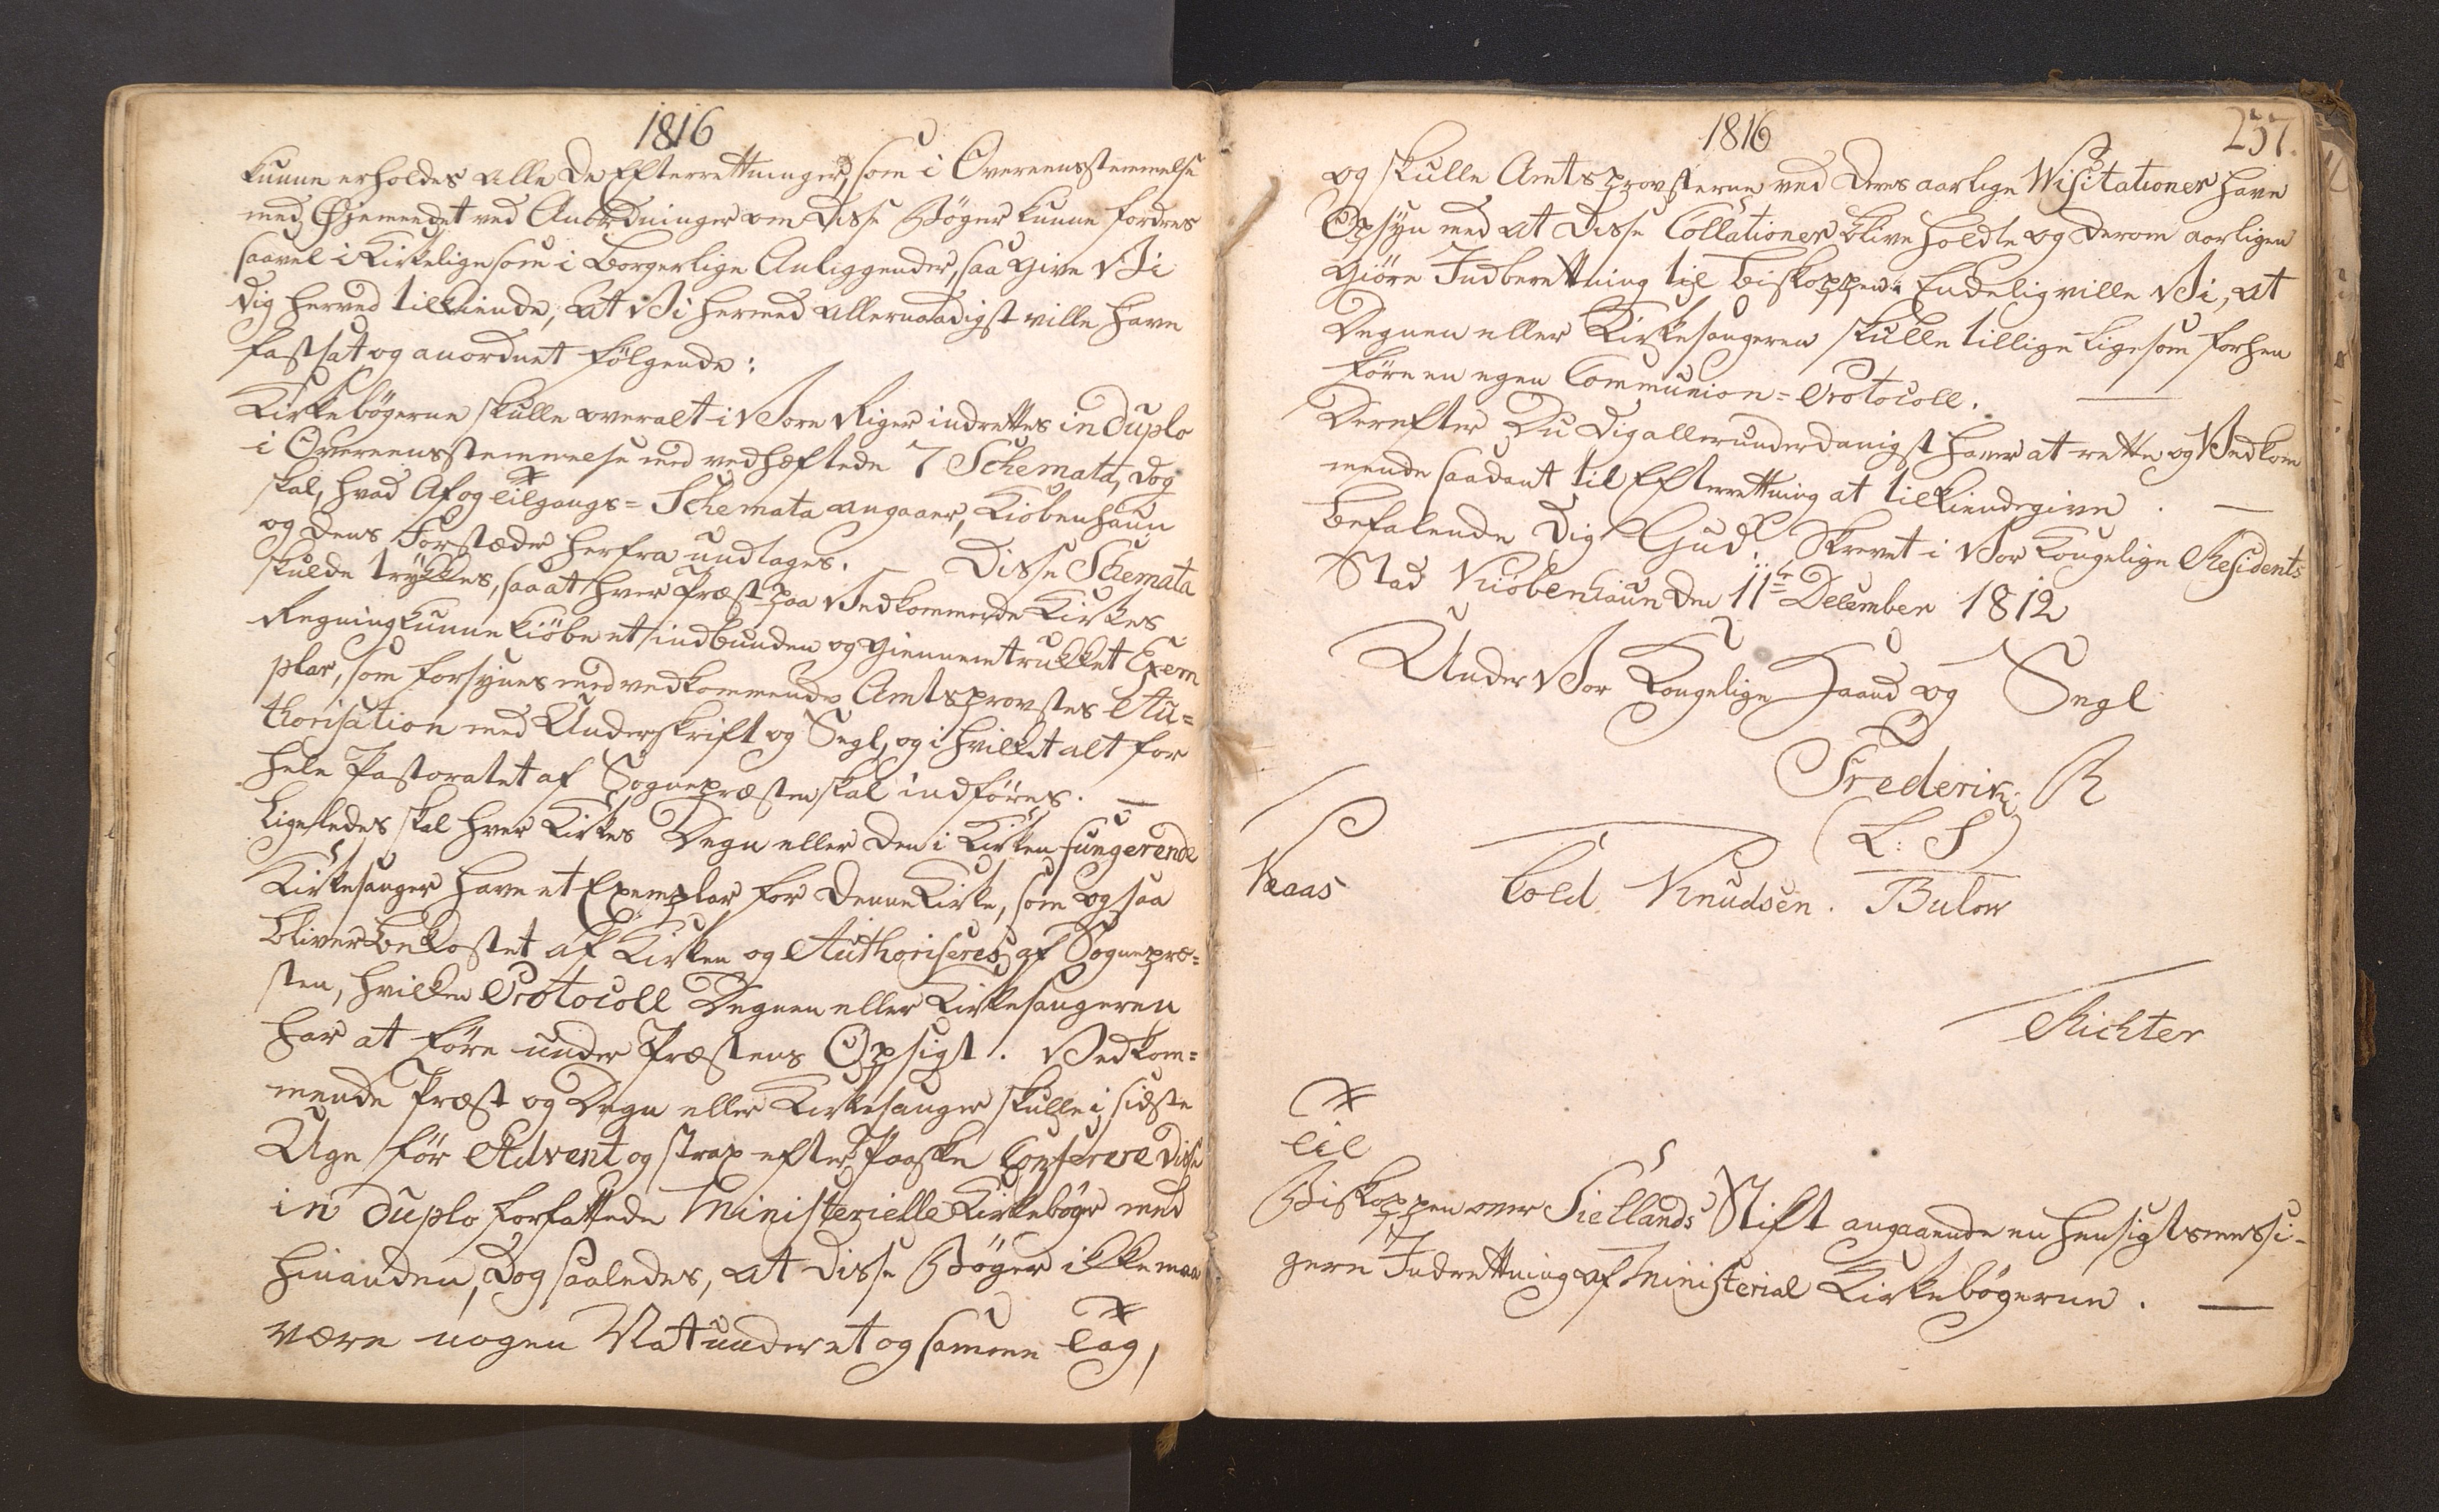 1816
kunne erholdes alle de Efterretninger, som i Overeensstemmelse
med Øjemeedet ved Anordninger om disse Bøger kunne fordres
saavel i Kirkelige som i borgerlige Anliggender, saa give Vi
dig herved tilkiende, at Vi hermed allernaadigst ville have
fastsat og anordnet følgende:
Kirkebøgerne skulle overalt i Vore Riger indrettes in duplo
i Overeensstemmelse med vedhæftede 7 Schemata, dog
skal, hvad Af og Tilgangs= Schemata angaaer, Kiøbenhaun
og dens Forstæder herfra undtages. Disse Schemata
skulde trykkes, saa at hver Præst paa Vedkommende Kirkes
Regning kunne kiöbe et indbunden og giennemtrukket Exem
plar, som forsynes med vedkommende Amtsprovstes Au=
thorisation med Underskrift og Segl, og i hvilket alt for
hele Pastoratet af Sognepræsten skal indföres. —
Ligeledes skal hver Kirkes Degn eller den i Kirken fungerende
Kirkesanger have et Exemplar for denne Kirke, som ogsaa
bliver bekostet af Kirken og Authoriseres af Sognepræ=
sten, hvilken Protocoll Degnen eller Kirkesangeren
har at före under Præstens Opsigt. Vedkom=
mende Præst og Degn eller Kirkesanger skulle i sidste
Uge för Advent og strax efter Paaske Conferere disse
in duplo forfattede Ministerielle Kirkebøger med
hinanden, dog saaledes, at disse Bøger ikke maa
være nogen Nat under et og samme Tag,
1816
237.
og skulle Amtsprovsterne ved deres aarlige Visitationer have
Opsyn med at disse Collationer blive holdte og derom aarligen
giöre Indberetning til Biskoppen. Endelig ville Vi, at
Degnen eller Kirkesangeren skulle tillige ligesom forhen
före en egen Communion=Protocoll. —
Derefter Du dig allerunderdanigst haver at rette og Vedkom
mende saadant til Efterretning at tilkiendegive. —
Befalende dig Gud. Skrevet i Vor Kongelige Residents
Stad Kiöbenhaun den 11te December 1812
Under Vor Kongelige Haand og Segl
Frederik R
(L: S)
Kaas Cold. Knudsen. Bulow
Richter
Til
Biskoppen over Siellands Stift angaaende en hensigtsmessi-
gere Indretning af Ministerial Kirkebøgerne. —